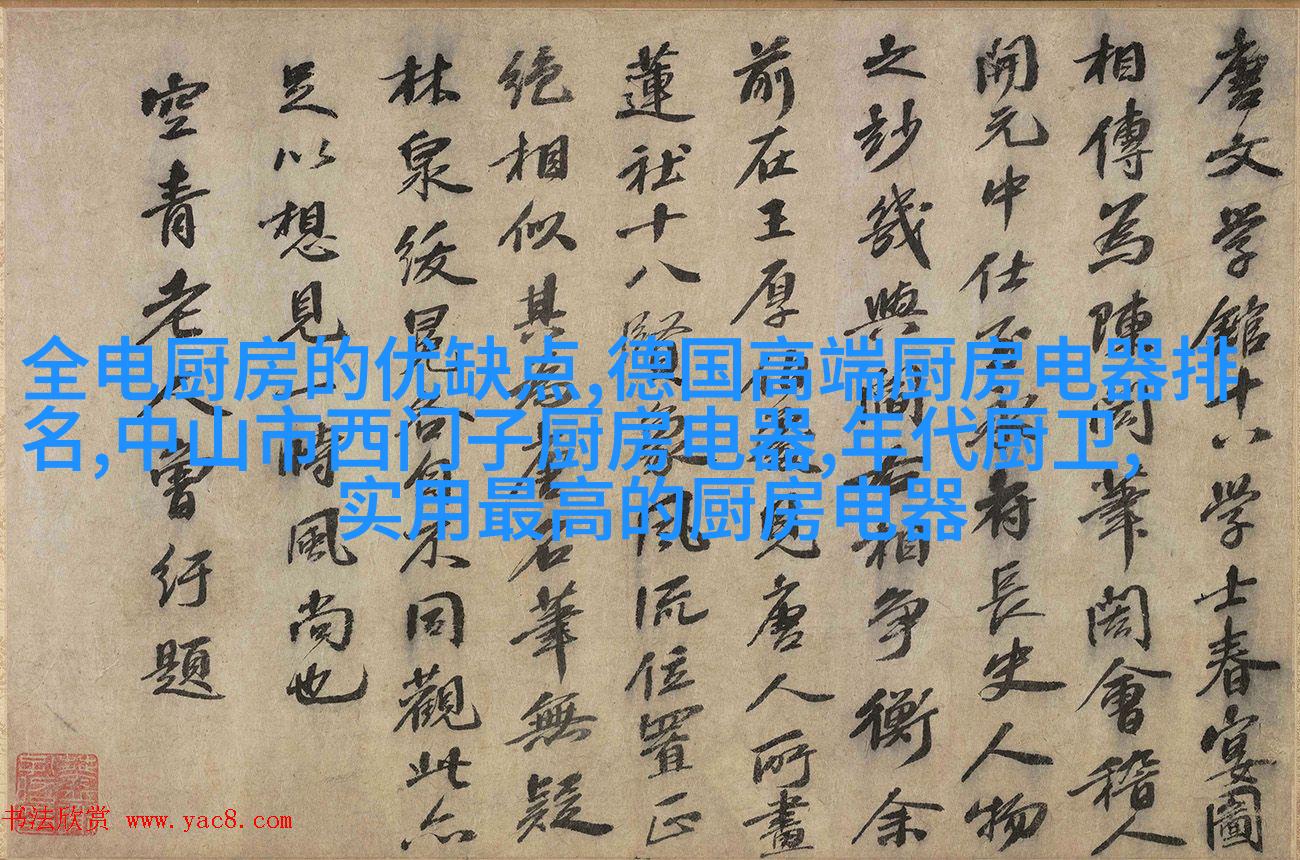 唐文学館十八学士春宴圖
相傳為陳閎筆閎會稽人
開元中仕
府長史人物
之妙幾與
相争衡余
前在王厚
見唐人所畫
蓮社十八賢
風流位置正
絶相似其為
名筆無疑
林泉綏
不同觀此亦
足以想見
時風尚也
空青老人曾紆題
全电厨房的优缺点,德国高端厨房电器排
名,中山市西门子厨房电器,年代厨卫,
实用最高的厨房电器
书法欣赏 www.yac8.com